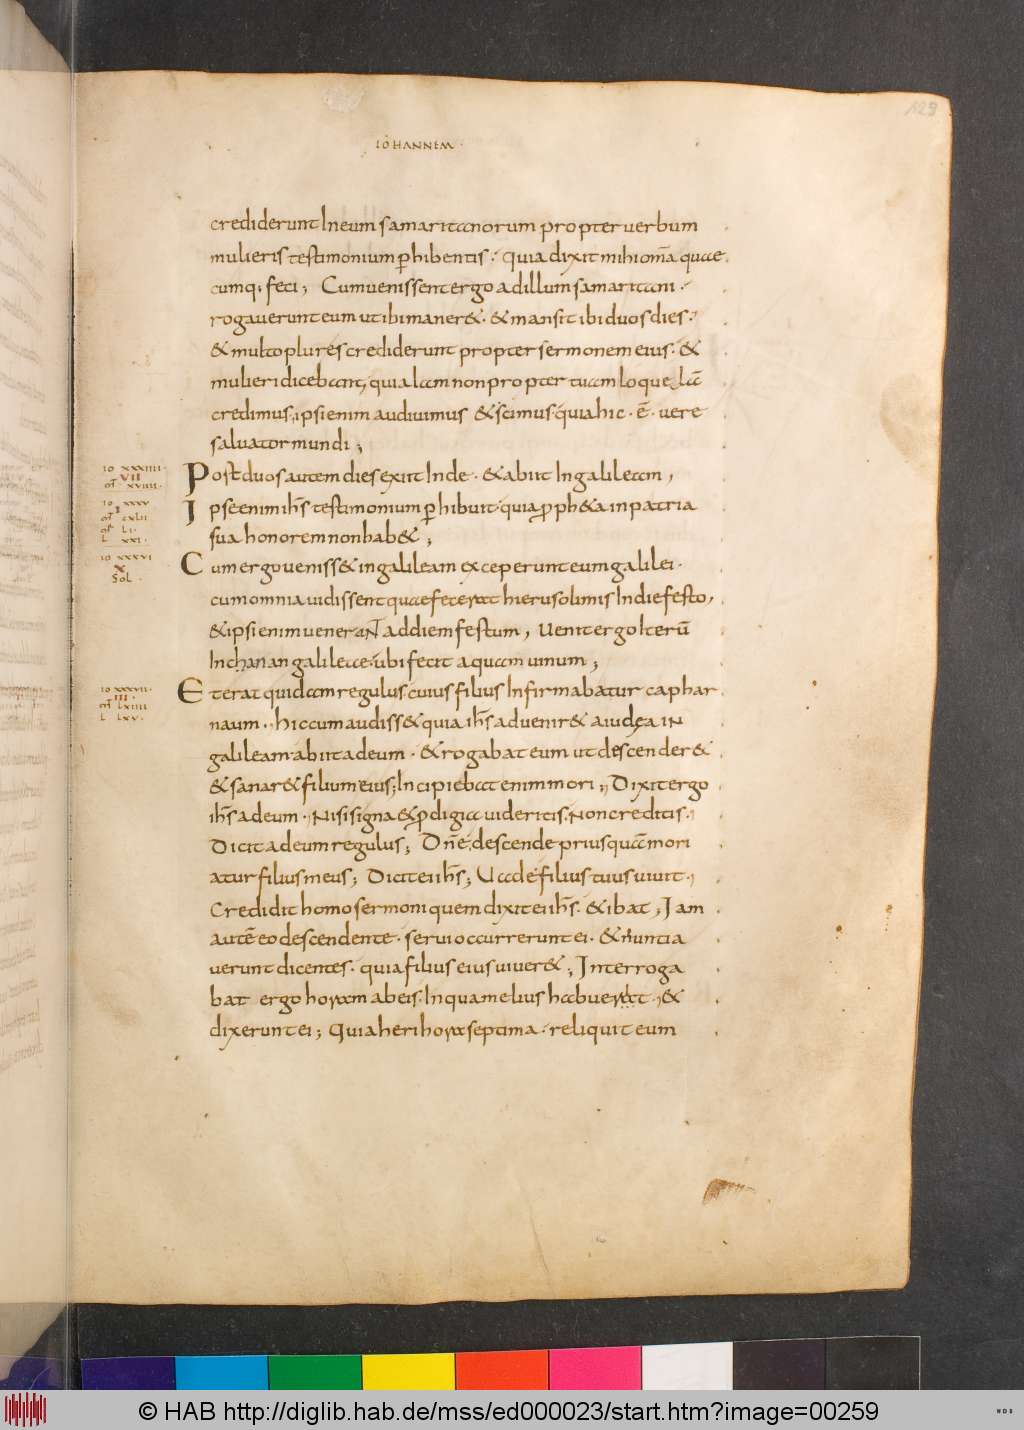 129
IOHANNEM
crediderunt In eum samaritanorum propter uerbum
mulieris testimonium p̄hibentis· Quia dixit mihi om̄a quae
cumq; feci; Cum uenissent ergo ad illum samaritani·
rogauerunt eum ut ibi maner&· & mansit ibi duos dies·
& multo plures crediderunt propter sermonem eius· &
mulieri dicebant, quia Iam non propter tuam loquelā
credimus, ipsi enim audiuimus & scimus quia hic· ē· uere
saluator mundi;
IO XXXIIII·
VII
Post duos autem dies exiit Inde· & abiit In galileam,
IO XXXV
I
mt̄ CXLII
LI·
L XXI·
Ipse enim ihs̄ testimonium p̄hibuit· quia ꝓph&a in patria
sua honorem non hab&;
IO XXXVI
X
Sol·
Cum ergo ueniss& in galileam exceperunt eum galilei·
cum omnia uidissent quae fecerat hierusolimis In die festo,
& ipsi enim uenerANT ad diem festum, Uenit ergo Iterū
In chanan galileae· ubi fecit aquam uinum;
IO XXXVII·
III
mt̄ LXIIII
L LXV·
Et erat quidam regulus cuius filius Infirmabatur caphar
naum· hic cum audiss& quia ihs̄ aduenir& a iudęa IN
galileam· abiit ad eum· & rogabat eum ut descender&
& sanar& filium eius; Incipiebat enim mori; Dixit ergo
ihs̄ ad eum· Nisi signa & ꝓdigia uideritis· Non creditis·
Dicit ad eum regulus; Dn̄e, descende priusquā mori
atur filius meus; Dicit ei ihs̄; Uade filius tuus uiuit·
Credidit homo sermoni quem dixit ei ihs̄· & ibat, Iam
autē eo descendente· serui occurrerunt ei· & nuntia
uerunt dicentes· quia filius eius uiuer&; Interroga
bat ergo horam ab eis· In qua melius habuerat·, &
dixerunt ei; Quia heri hora septima· reliquit eum
© HAB http://diglib.hab.de/mss/ed000023/start.htm?image=00259